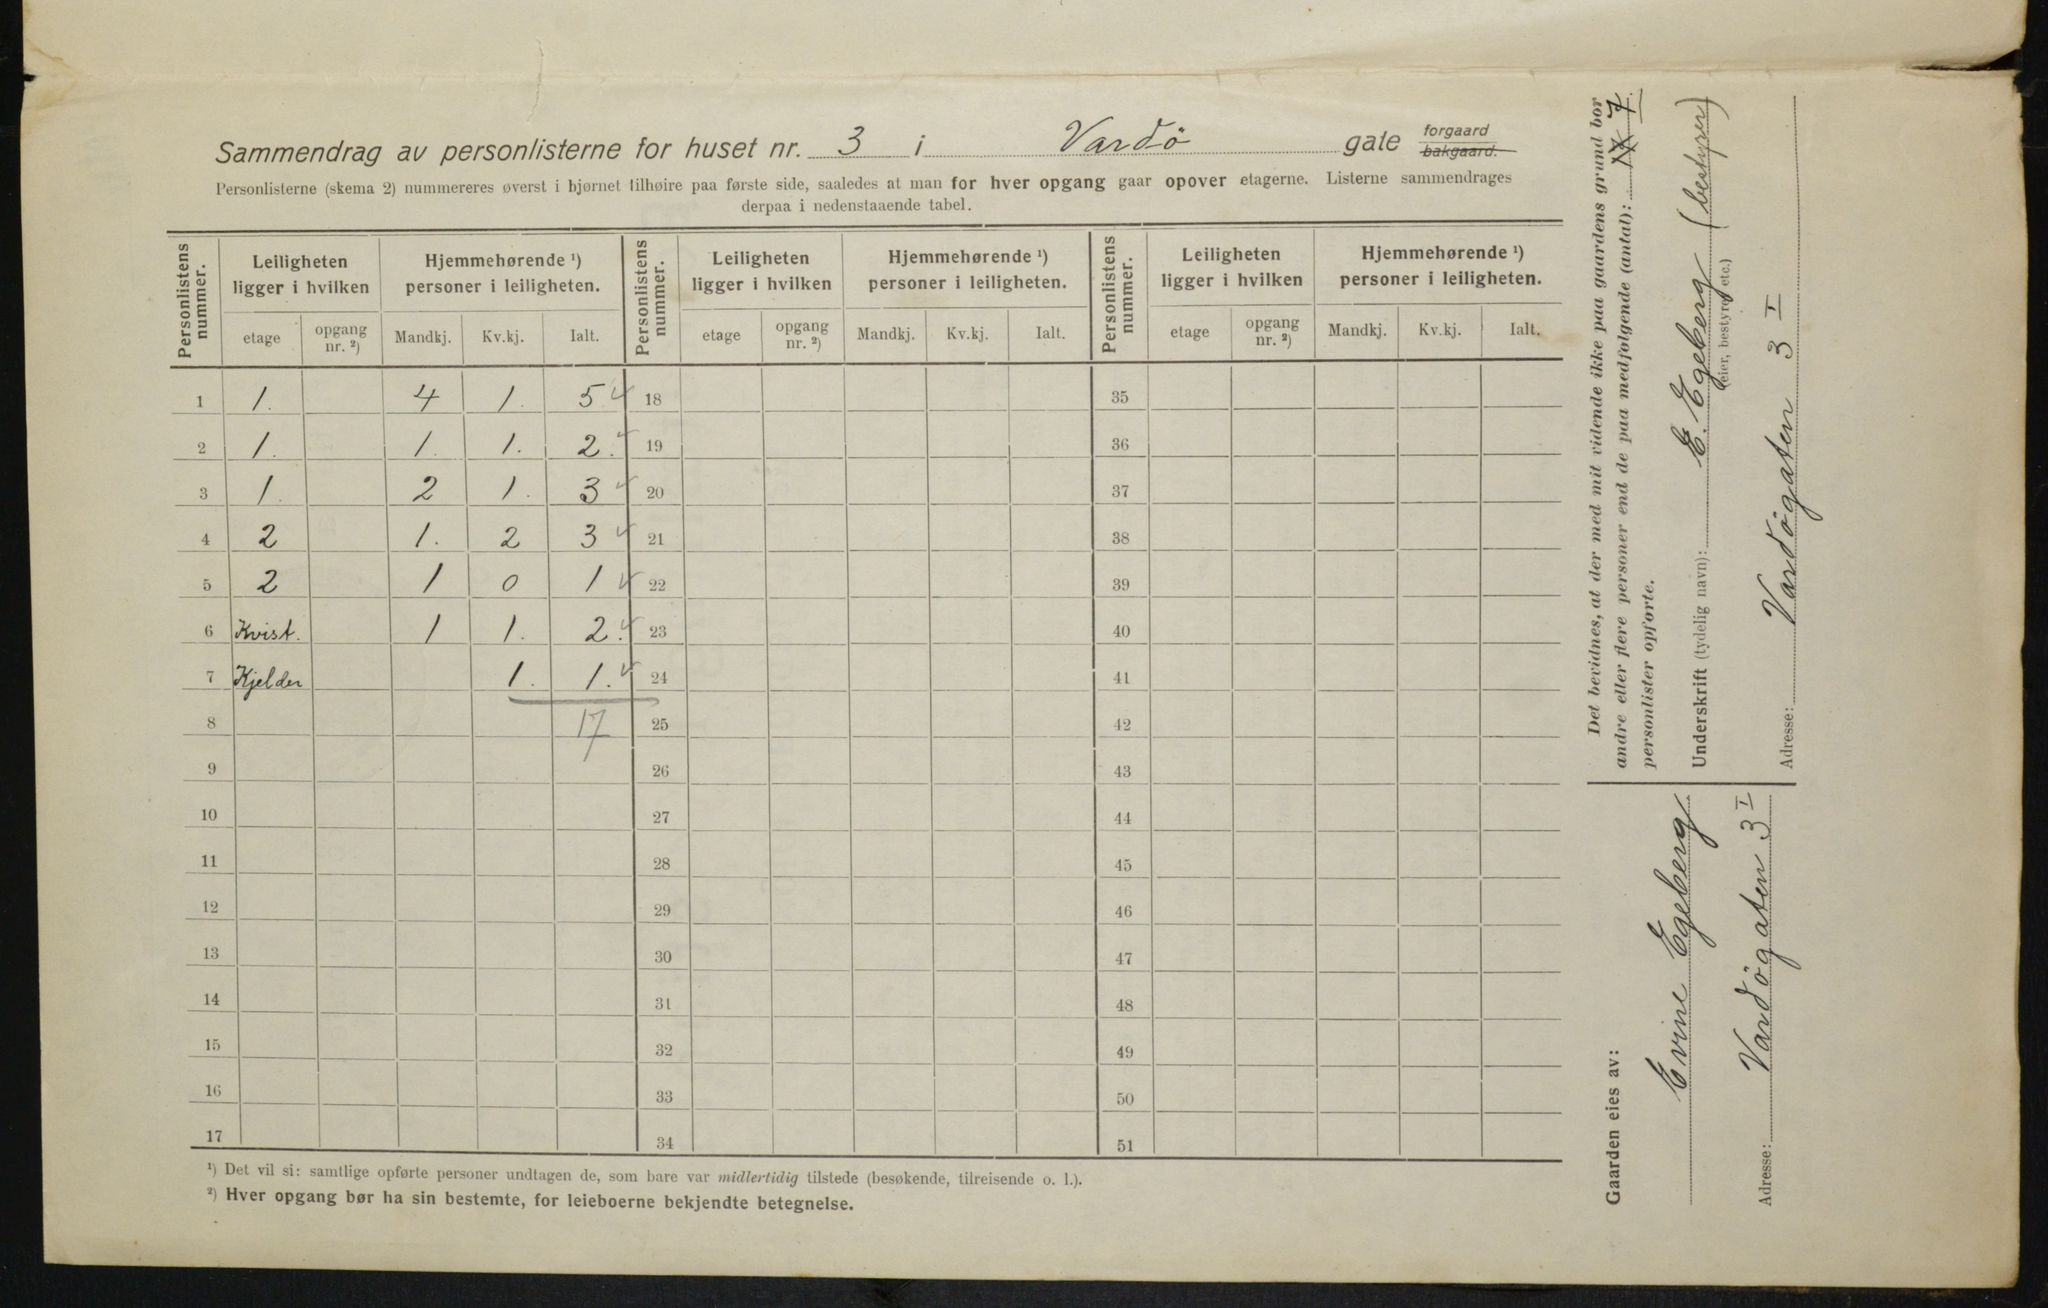 Sammendrag av personlisterne for huset nr. 3 i Vardö gate forgaard bakgaard.
Personlisterne (skema 2) nummereres øverst i hjørnet tilhøire paa første side, saaledes at man for hver opgang gaar opover etagerne. Listerne sammendrages
derpaa i nedenstaaende tabel.
Personlistens nummer. Leiligheten ligger i hvilken Hjemmehørende ¹) personer i leiligheten. Personlistens nummer. Leiligheten ligger i hvilken Hjemmehørende ¹) personer i leiligheten. Personlistens nummer. Leiligheten ligger i hvilken Hjemmehørende ¹) personer i leiligheten.
etage opgang nr. ²) Mandkj. Kv.kj. Ialt. etage opgang nr. ²) Mandkj. Kv.kj. Ialt. etage opgang nr. ²) Mandkj. Kv.kj. Ialt.
1 1. 4 1. 5 18 35
2 1. 1. 1. 2. 19 36
3 1. 2 1. 3 20 37
4 2 1. 2 3 21 38
5 2 1 0 1 22 39
6 Kvist. 1 1. 2. 23 40
7 Kjelder 1. 1. 24 41
8 17 25 42
9 26 43
10 27 44
11 28 45
12 29 46
13 30 47
14 31 48
15 32 49
16 33 50
17 34 51
¹) Det vil si: samtlige opførte personer undtagen de, som bare var midlertidig tilstede (besøkende, tilreisende o. l.).
²) Hver opgang bør ha sin bestemte, for leieboerne bekjendte betegnelse.
Det bevidnes, at der med mit vidende ikke paa gaardens grund bor
andre eller flere personer end de paa medfolgende (antal): 17 7.
personlister opforte.
Underskrift (tydelig navn): E. Egeberg (bestyrer)
(eier, bestyrer etc.)
Adresse: Vardögaten 3 I
Gaarden eies av:
Evine Egeberg
Adresse: Vardögaten 3 I